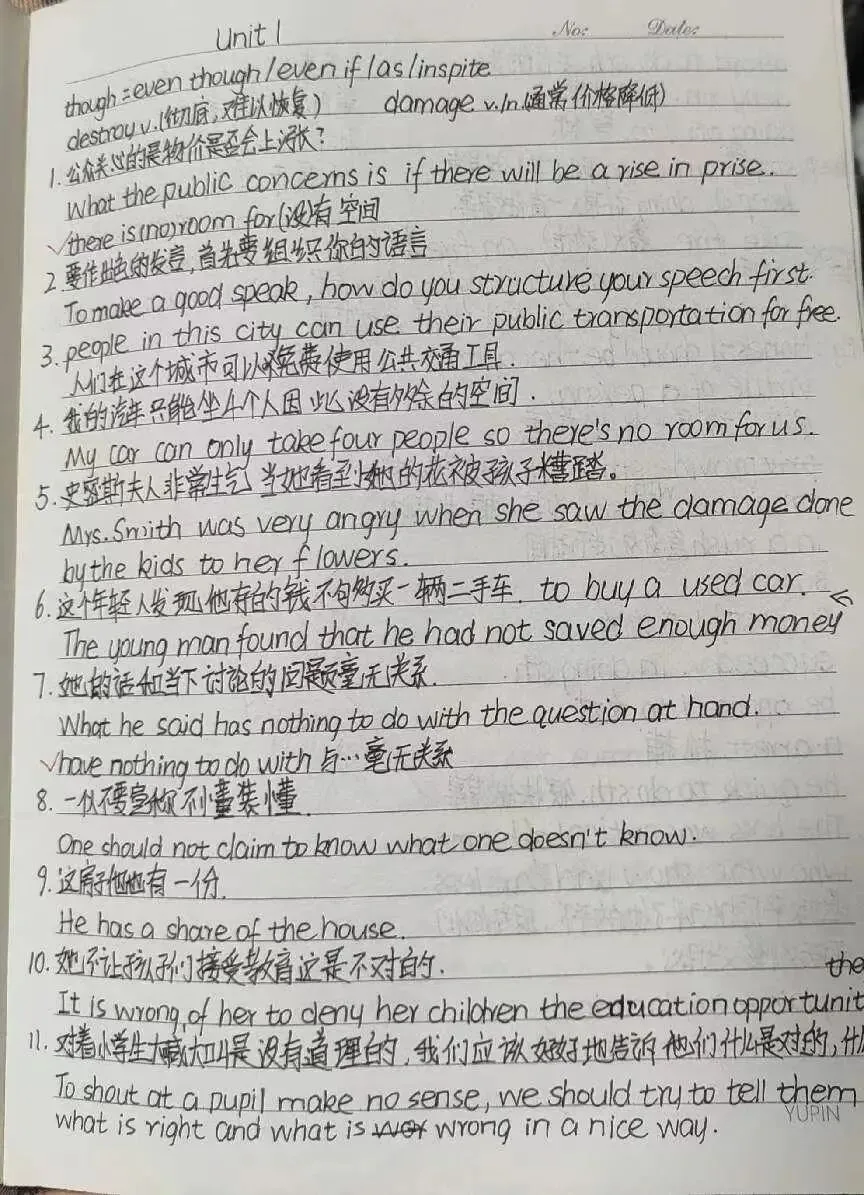 Unit 1
No: Date:
though = even though / even if / as / inspite
destroy v. (彻底, 难以恢复) damage v./n. (通常价格降低)
1. 公众关心的是物价是否会上涨?
What the public concerns is if there will be a rise in prise.
√ there is (no) room for (没有空间
2. 要作出色的发言, 首先要组织你的语言
To make a good speak, how do you structure your speech first.
3. people in this city can use their public transportation for free.
人们在这个城市可以免费使用公共交通工具.
4. 我的汽车只能坐4个人因此没有多余的空间.
My car can only take four people so there's no room for us.
5. 史密斯夫人非常生气, 当她看到她的花被孩子糟踏。
Mrs. Smith was very angry when she saw the damage done
by the kids to her flowers.
6. 这个年轻人发现他存的钱不够购买一辆二手车. to buy a used car.
The young man found that he had not saved enough money
7. 她的话和当下讨论的问题毫无关系.
What he said has nothing to do with the question at hand.
√ have nothing to do with 与…毫无关系
8. 不要不懂装懂.
One should not claim to know what one doesn't know.
9. 这房子他也有一份.
He has a share of the house.
10. 她不让孩子们接受教育这是不对的. the
It is wrong, of her to deny her children the education opportunit
11. 对着小学生大喊大叫是没有道理的, 我们应该好好地告诉他们什么是对的, 什
To shout at a pupil make no sense, we should try to tell them
what is right and what is wrong in a nice way.
YUPIN